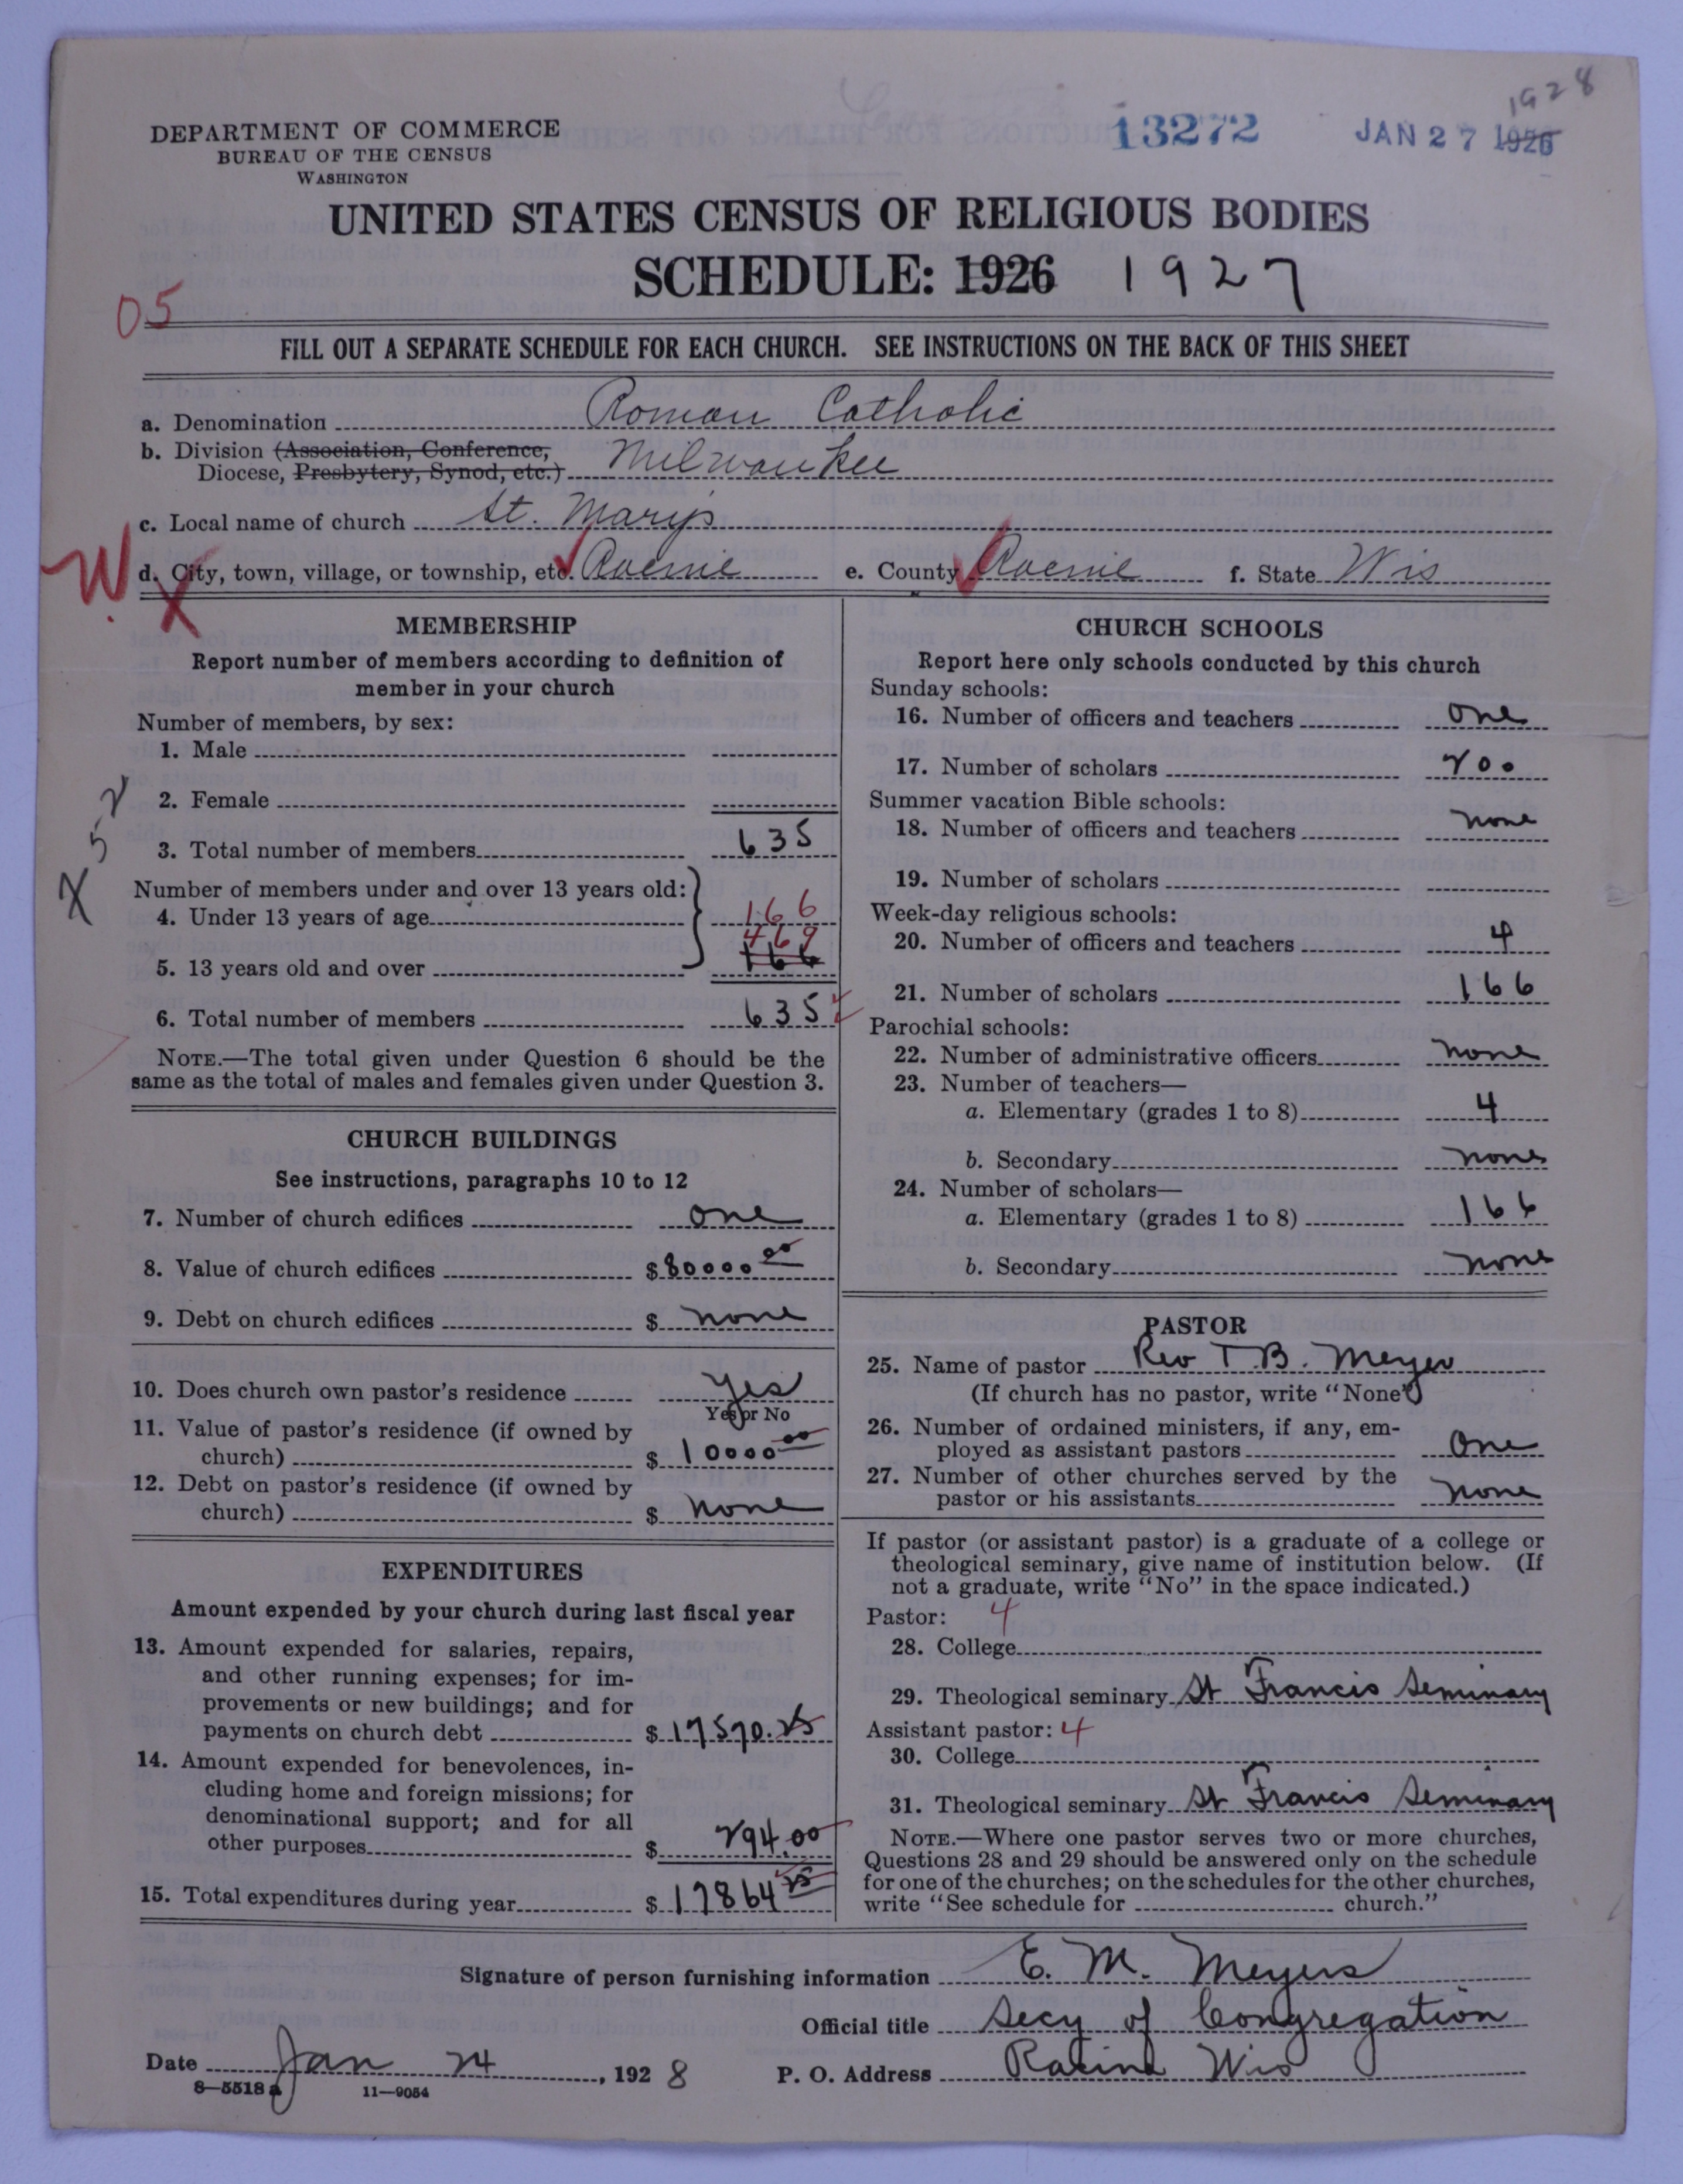 1928
13272
JAN 27 1926
DEPARTMENT OF COMMERCE
BUREAU OF THE CENSUS
WASHINGTON
UNITED STATES CENSUS OF RELIGIOUS BODIES
SCHEDULE: 1926 1927
05
FILL OUT A SEPARATE SCHEDULE FOR EACH CHURCH. SEE INSTRUCTIONS ON THE BACK OF THIS SHEET
a. Denomination Roman Catholic
b. Division (Association, Conference,
Diocese, Presbytery, Synod, etc.) Milwaukee
c. Local name of church St. Mary's
W. X
d. City, town, village, or township, etc. Racine e. County Racine f. State Wis
MEMBERSHIP
Report number of members according to definition of
member in your church
Number of members, by sex:
1. Male
2. Female
3. Total number of members 635
X 5-2
Number of members under and over 13 years old:
4. Under 13 years of age 166
469
5. 13 years old and over 166
6. Total number of members 635
NOTE.—The total given under Question 6 should be the
same as the total of males and females given under Question 3.
CHURCH BUILDINGS
See instructions, paragraphs 10 to 12
7. Number of church edifices one
8. Value of church edifices $80000 00
9. Debt on church edifices $ none
10. Does church own pastor's residence yes
Yes or No
11. Value of pastor's residence (if owned by
church) $10000 00
12. Debt on pastor's residence (if owned by
church) $ none
EXPENDITURES
Amount expended by your church during last fiscal year
13. Amount expended for salaries, repairs,
and other running expenses; for im-
provements or new buildings; and for
payments on church debt $17570.25
14. Amount expended for benevolences, in-
cluding home and foreign missions; for
denominational support; and for all
other purposes $ 294.00
15. Total expenditures during year $17864 25
CHURCH SCHOOLS
Report here only schools conducted by this church
Sunday schools:
16. Number of officers and teachers one
17. Number of scholars 200
Summer vacation Bible schools:
18. Number of officers and teachers none
19. Number of scholars
Week-day religious schools:
20. Number of officers and teachers 4
21. Number of scholars 166
Parochial schools:
22. Number of administrative officers none
23. Number of teachers—
a. Elementary (grades 1 to 8) 4
b. Secondary none
24. Number of scholars—
a. Elementary (grades 1 to 8) 166
b. Secondary none
PASTOR
25. Name of pastor Rev T.B. Meyer
(If church has no pastor, write "None")
26. Number of ordained ministers, if any, em-
ployed as assistant pastors One
27. Number of other churches served by the
pastor or his assistants none
If pastor (or assistant pastor) is a graduate of a college or
theological seminary, give name of institution below. (If
not a graduate, write "No" in the space indicated.)
Pastor: 4
28. College
29. Theological seminary St Francis Seminary
Assistant pastor: 4
30. College
31. Theological seminary St Francis Seminary
NOTE.—Where one pastor serves two or more churches,
Questions 28 and 29 should be answered only on the schedule
for one of the churches; on the schedules for the other churches,
write "See schedule for church."
Signature of person furnishing information E. M. Meyers
Official title Secy of Congregation
Date Jan 24, 1928 P. O. Address Racine Wis
8—5518 a 11—9054